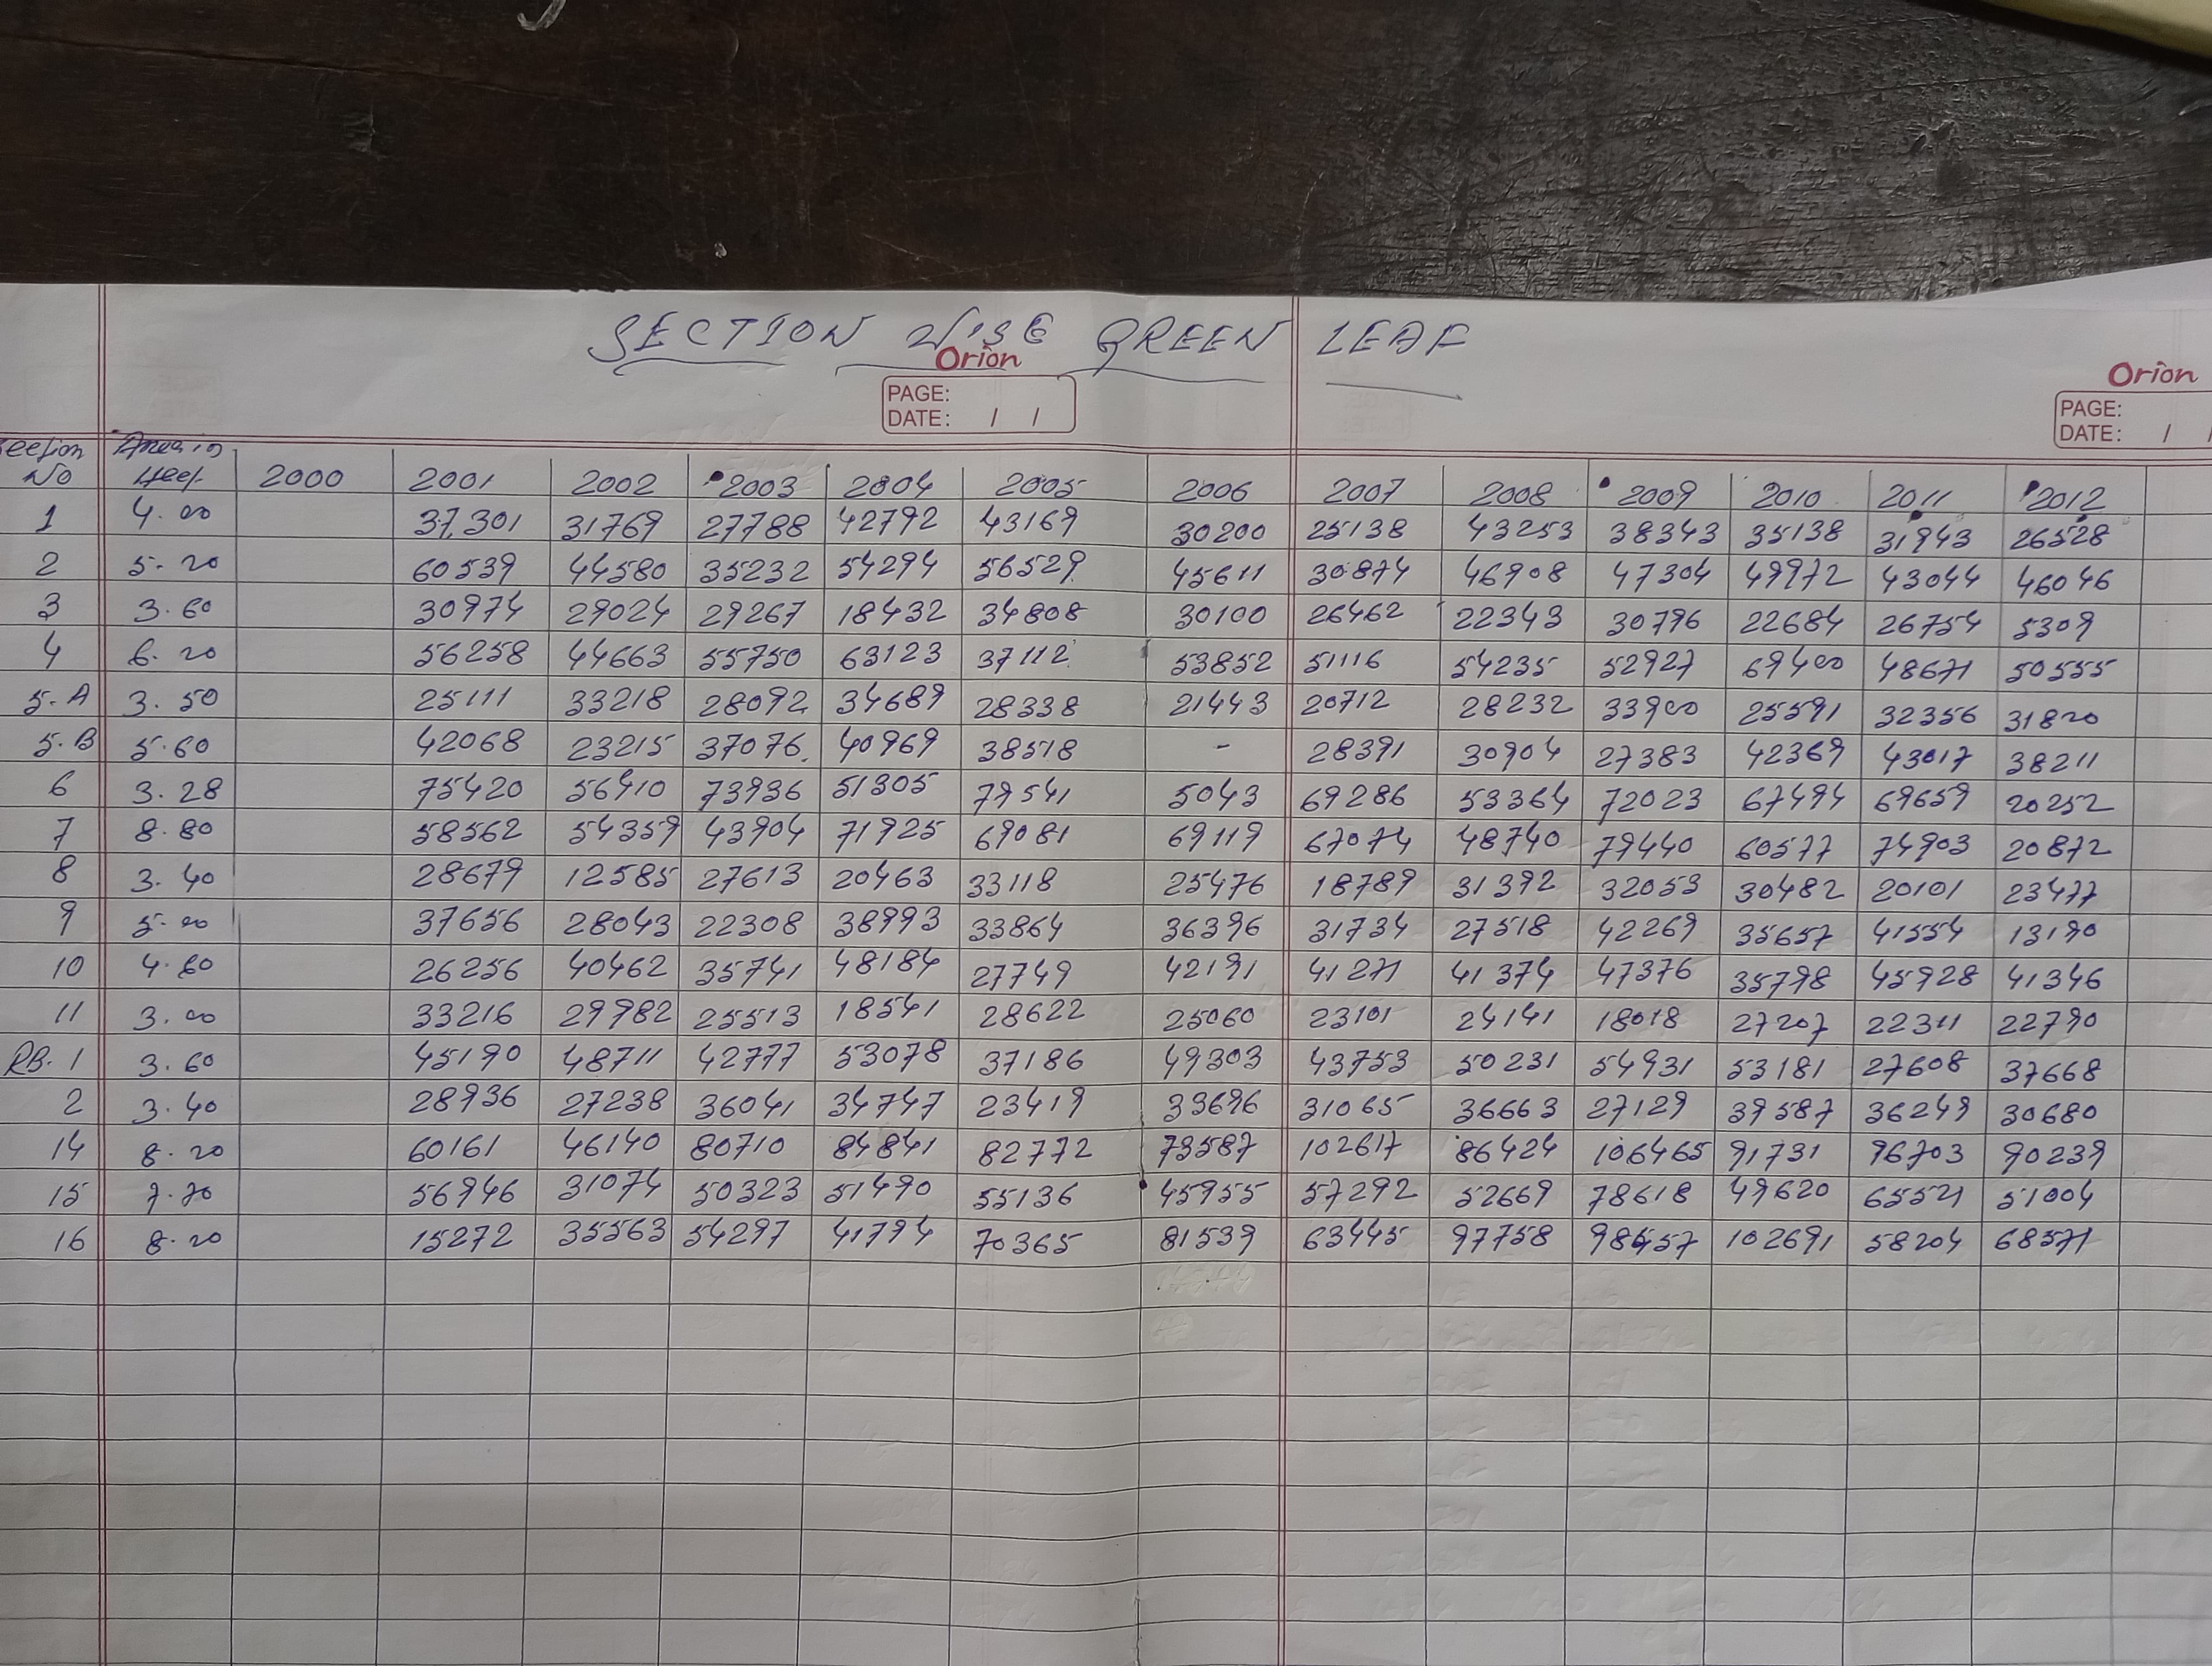 SECTION WISE GREEN LEAF
Orion
PAGE:
DATE: / /
Orion
PAGE:
DATE: / /
Section No Area in Hect. 2000 2001 2002 2003 2004 2005 2006 2007 2008 2009 2010 2011 2012
1 4.00 37301 31769 27788 42792 43169 30200 25138 43253 38343 35138 31943 26528
2 5.20 60539 44580 35232 54294 56529 45611 30874 46908 47304 49972 43044 46046
3 3.60 30974 29024 29267 18432 34808 30100 26462 22343 30796 22684 26754 5309
4 6.20 56258 44663 55750 63123 37112 53852 51116 54235 52927 69400 48671 50555
5.A 3.50 25111 33218 28092 34689 28338 21443 20712 28232 33900 25591 32356 31820
5.B 5.60 42068 23215 37076 40969 38518 - 28391 30904 27383 42369 43017 38211
6 3.28 75420 56410 73936 51305 79541 5043 69286 53364 72023 67494 69659 20252
7 8.80 58562 54359 43904 71925 69081 69119 67074 48740 79440 60577 74903 20872
8 3.40 28679 12585 27613 20463 33118 25476 18789 31392 32053 30482 20101 23477
9 5.00 37656 28043 22308 38993 33864 36396 31734 27518 42269 35657 41554 13190
10 4.60 26256 40462 35741 48184 27749 42191 41271 41374 47376 35798 45928 41346
11 3.00 33216 29982 25513 18541 28622 25060 23101 24141 18018 27207 22311 22790
RB. 1 3.60 45190 48711 42777 53078 37186 49303 43753 50231 54931 53181 27608 37668
2 3.40 28936 27238 36041 34747 23419 33696 31065 36663 27129 39587 36249 30680
14 8.20 60161 46140 80710 84841 82772 73587 102617 86424 106465 91731 96703 90239
15 7.70 56946 31074 50323 51490 55136 45955 57292 52669 78618 49620 65521 51004
16 8.20 15272 35563 54297 41794 70365 81539 63445 97758 98457 102691 58204 68571